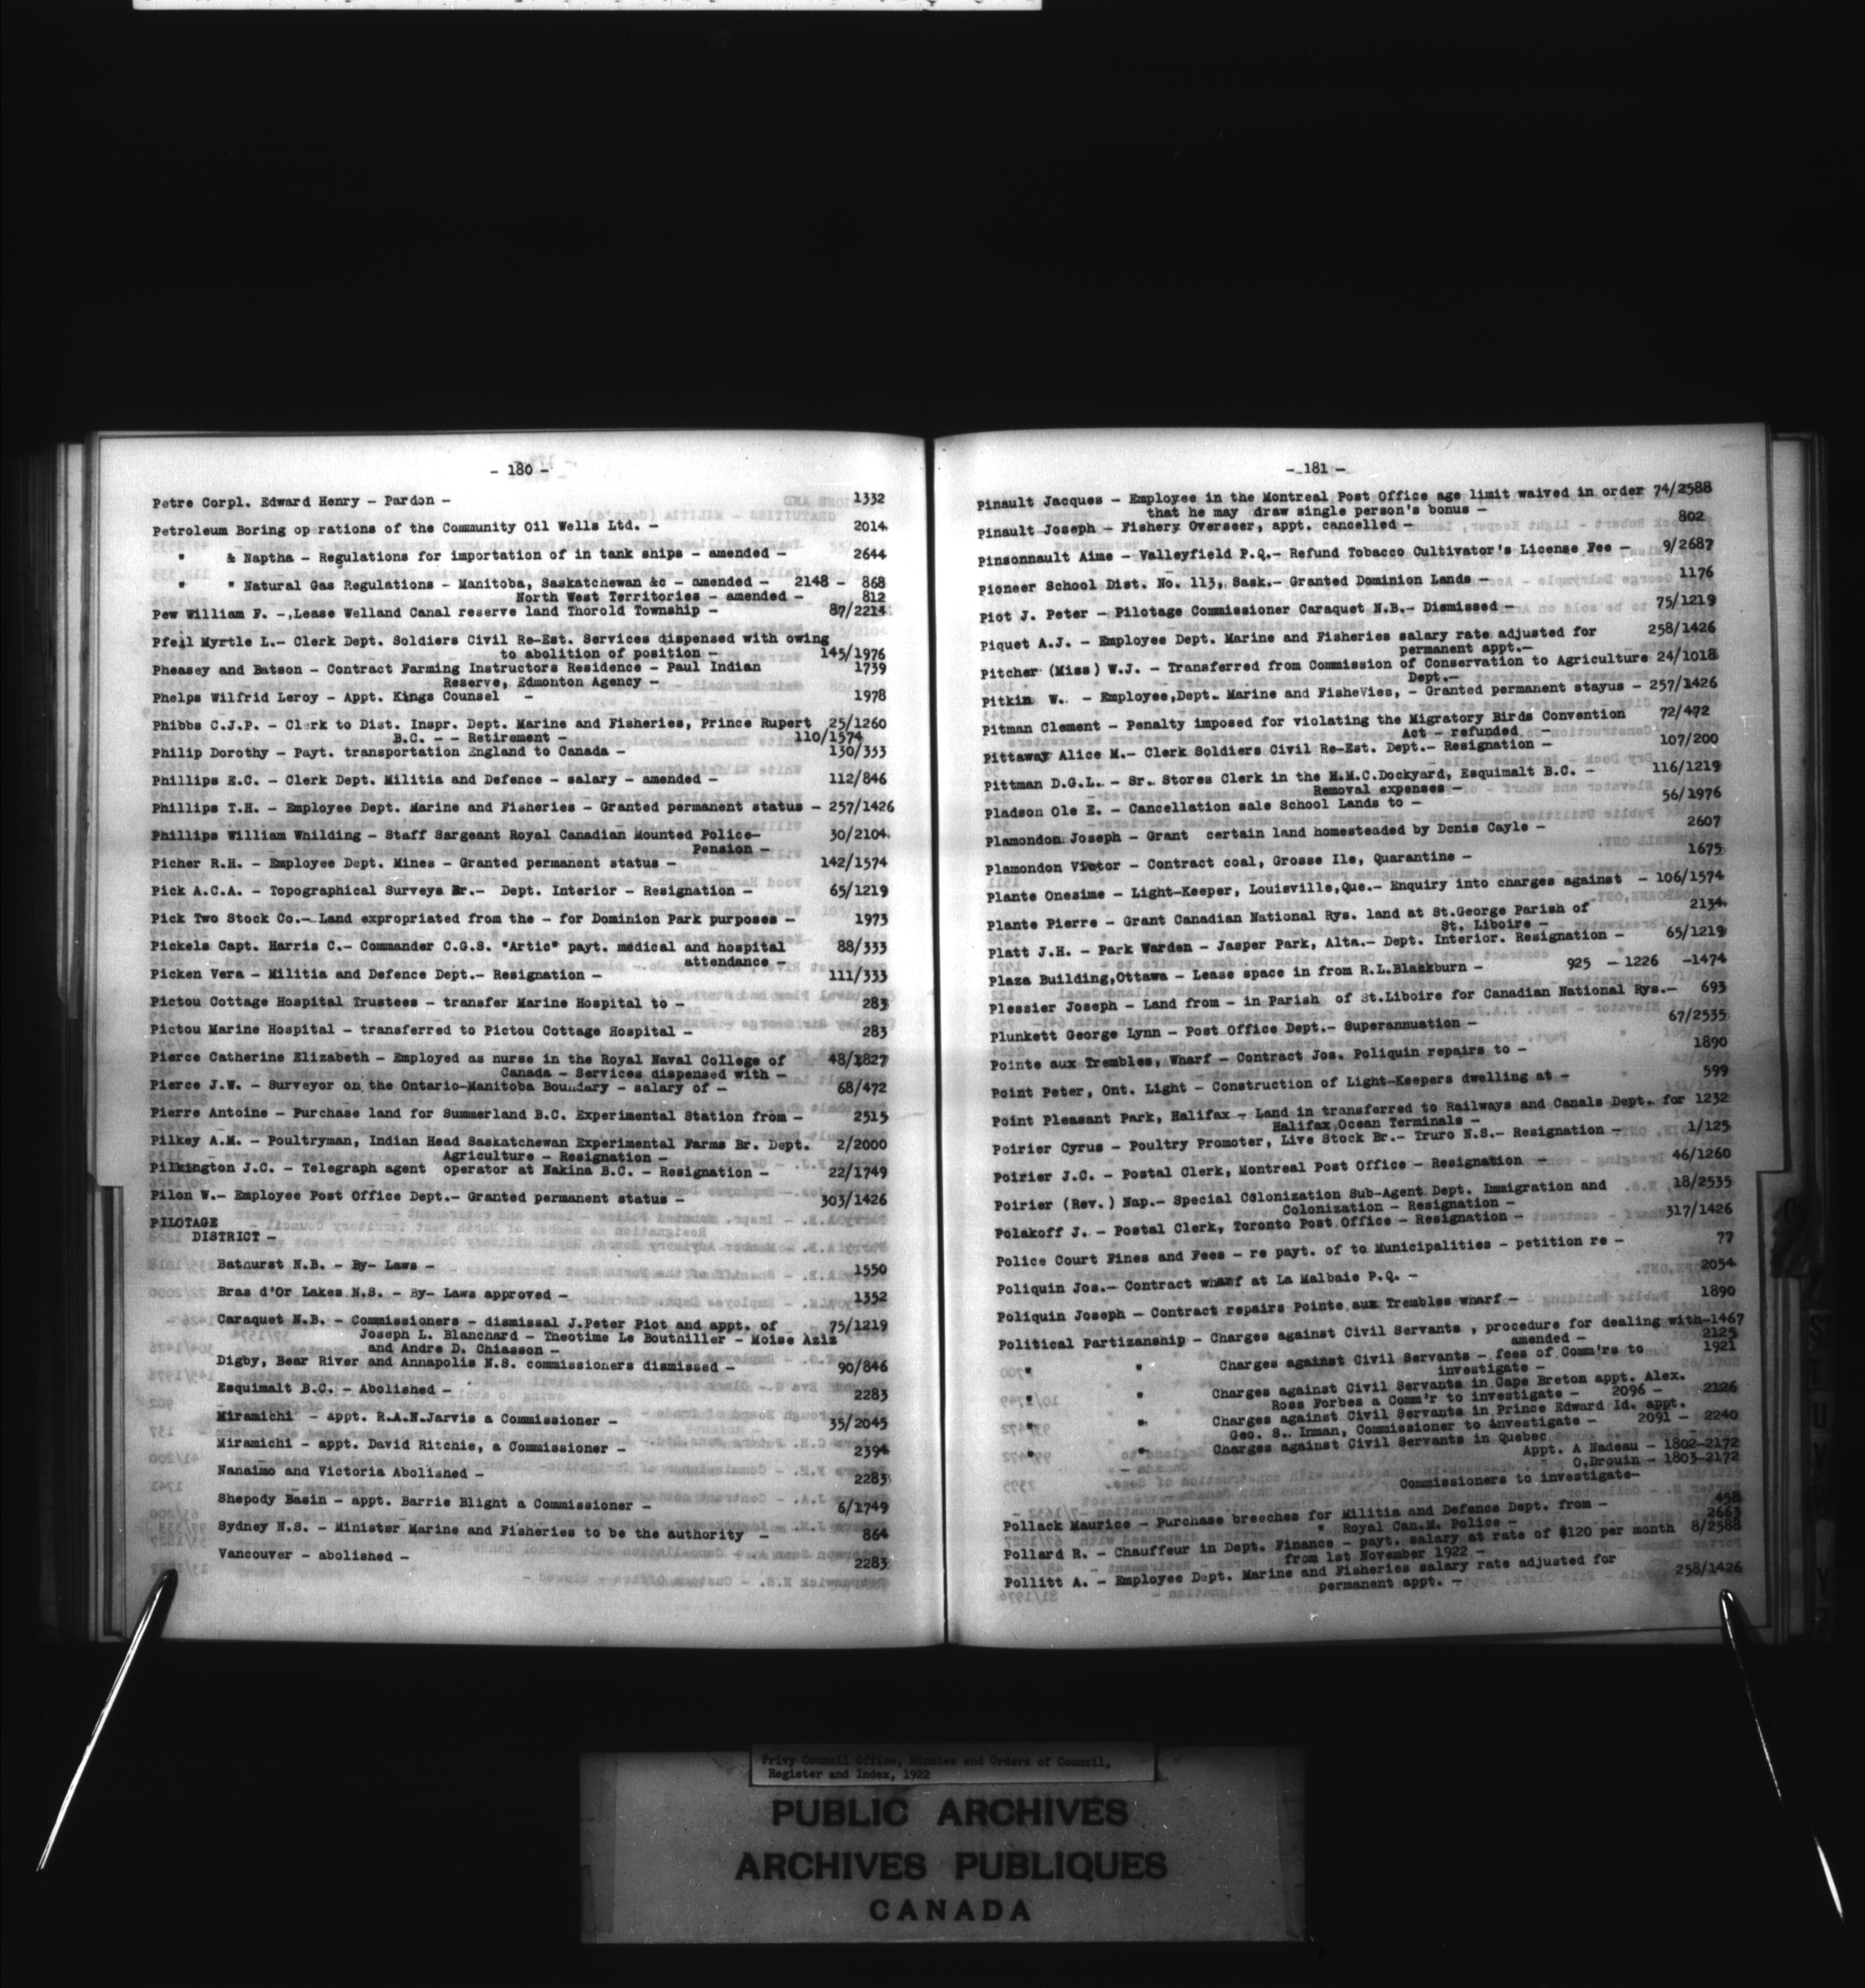 - 180 -
Petre Corpl. Edward Henry - Pardon - 1332
Petroleum Boring op rations of the Community Oil Wells Ltd. - 2014
" & Naptha - Regulations for importation of in tank ships - amended - 2644
" " Natural Gas Regulations - Manitoba, Saskatchewan &c - amended - 2148 - 868
North West Territories - amended - 812
Pew William F. -,Lease Welland Canal reserve land Thorold Township - 87/2214
Pfeil Myrtle L.- Clerk Dept. Soldiers Civil Re-Est. Services dispensed with owing
to abolition of position - 145/1976
Pheasey and Batson - Contract Farming Instructors Residence - Paul Indian 1739
Reserve, Edmonton Agency -
Phelps Wilfrid Leroy - Appt. Kings Counsel - 1978
Phibbs C.J.P. - Clerk to Dist. Inspr. Dept. Marine and Fisheries, Prince Rupert 25/1260
B.C. - - Retirement - 110/1574
Philip Dorothy - Payt. transportation England to Canada - 130/333
Phillips E.C. - Clerk Dept. Militia and Defence - salary - amended - 112/846
Phillips T.H. - Employee Dept. Marine and Fisheries - Granted permanent status - 257/1426
Phillips William Whilding - Staff Sargeant Royal Canadian Mounted Police- 30/2104
Pension -
Picher R.H. - Employee Dept. Mines - Granted permanent status - 142/1574
Pick A.C.A. - Topographical Surveys Br.- Dept. Interior - Resignation - 65/1219
Pick Two Stock Co.- Land expropriated from the - for Dominion Park purposes - 1973
Pickels Capt. Harris C.- Commander C.G.S. "Artic" payt. medical and hospital 88/333
attendance -
Picken Vera - Militia and Defence Dept.- Resignation - 111/333
Pictou Cottage Hospital Trustees - transfer Marine Hospital to - 283
Pictou Marine Hospital - transferred to Pictou Cottage Hospital - 283
Pierce Catherine Elizabeth - Employed as nurse in the Royal Naval College of 48/1827
Canada - Services dispensed with -
Pierce J.W. - Surveyor on the Ontario-Manitoba Boundary - salary of - 68/472
Pierre Antoine - Purchase land for Summerland B.C. Experimental Station from - 2515
Pilkey A.M. - Poultryman, Indian Head Saskatchewan Experimental Farms Br. Dept. 2/2000
Agriculture - Resignation -
Pilkington J.C. - Telegraph agent operator at Nakina B.C. - Resignation - 22/1749
Pilon W.- Employee Post Office Dept.- Granted permanent status - 303/1426
PILOTAGE
DISTRICT -
Bathurst N.B. - By- Laws - 1550
Bras d'Or Lakes N.S. - By- Laws approved - 1352
Caraquet N.B. - Commissioners - dismissal J.Peter Piot and appt. of 75/1219
Joseph L. Blanchard - Theotime Le Bouthiller - Moise Aziz
and Andre D. Chiasson -
Digby, Bear River and Annapolis N.S. commissioners dismissed - 90/846
Esquimalt B.C. - Abolished - 2283
Miramichi - appt. R.A.N.Jarvis a Commissioner - 35/2045
Miramichi - appt. David Ritchie, a Commissioner - 2394
Nanaimo and Victoria Abolished - 2283
Shepody Basin - appt. Barrie Blight a Commissioner - 6/1749
Sydney N.S. - Minister Marine and Fisheries to be the authority - 864
Vancouver - abolished - 2283
- 181 -
Pinault Jacques - Employee in the Montreal Post Office age limit waived in order 74/2588
that he may draw single person's bonus -
Pinault Joseph - Fishery Overseer, appt. cancelled - 802
Pinsonnault Aime - Valleyfield P.Q.- Refund Tobacco Cultivator's License Fee - 9/2687
Pioneer School Dist. No. 113, Sask.- Granted Dominion Lands - 1176
Piot J. Peter - Pilotage Commissioner Caraquet N.B.- Dismissed - 75/1219
Piquet A.J. - Employee Dept. Marine and Fisheries salary rate adjusted for 258/1426
permanent appt.-
Pitcher (Miss) W.J. - Transferred from Commission of Conservation to Agriculture 24/1018
Dept.-
Pitkin W. - Employee,Dept. Marine and FisheVies, - Granted permanent stayus - 257/1426
Pitman Clement - Penalty imposed for violating the Migratory Birds Convention 72/472
Act - refunded -
Pittaway Alice M.- Clerk Soldiers Civil Re-Est. Dept.- Resignation - 107/200
Pittman D.G.L. - Sr. Stores Clerk in the H.M.C.Dockyard, Esquimalt B.C. - 116/1219
Removal expenses -
Pladson Ole E. - Cancellation sale School Lands to - 56/1976
Plamondon Joseph - Grant certain land homesteaded by Donis Cayle - 2607
Plamondon Victor - Contract coal, Grosse Ile, Quarantine - 1675
Plante Onesime - Light-Keeper, Louisville,Que.- Enquiry into charges against - 106/1574
Plante Pierre - Grant Canadian National Rys. land at St.George Parish of 2134
St. Liboire -
Platt J.H. - Park Warden - Jasper Park, Alta.- Dept. Interior. Resignation - 65/1219
Plaza Building,Ottawa - Lease space in from R.L.Blackburn - 925 - 1226 -1474
Plessier Joseph - Land from - in Parish of St.Liboire for Canadian National Rys.- 693
Plunkett George Lynn - Post Office Dept.- Superannuation - 67/2535
Pointe aux Trembles, Wharf - Contract Jos. Poliquin repairs to - 1890
Point Peter, Ont. Light - Construction of Light-Keepers dwelling at - 599
Point Pleasant Park, Halifax - Land in transferred to Railways and Canals Dept. for 1232
Halifax Ocean Terminals -
Poirier Cyrus - Poultry Promoter, Live Stock Br.- Truro N.S.- Resignation - 1/125
Poirier J.C. - Postal Clerk, Montreal Post Office - Resignation - 46/1260
Poirier (Rev.) Nap.- Special Colonization Sub-Agent Dept. Immigration and 18/2535
Colonization - Resignation -
Polakoff J. - Postal Clerk, Toronto Post Office - Resignation - 317/1426
Police Court Fines and Fees - re payt. of to Municipalities - petition re - 77
Poliquin Jos.- Contract wharf at La Malbaie P.Q. - 2054
Poliquin Joseph - Contract repairs Pointe aux Trembles wharf - 1890
Political Partizanship - Charges against Civil Servants , procedure for dealing with-1467
amended - 2125
" " Charges against Civil Servants - fees of Comm'rs to 1921
investigate -
" " Charges against Civil Servants in Cape Breton appt. Alex.
Ross Forbes a Comm'r to investigate - 2096 - 2126
" " Charges against Civil Servants in Prince Edward Id. appt.
Geo. S. Inman, Commissioner to investigate - 2091 - 2240
" " Charges against Civil Servants in Quebec
Appt. A Nadeau - 1802-2172
" O.Drouin - 1803-2172
Commissioners to investigate-
Pollack Maurice - Purchase breeches for Militia and Defence Dept. from - 458
" Royal Can.M. Police - 2663
Pollard R. - Chauffeur in Dept. Finance - payt. salary at rate of $120 per month 8/2588
from 1st November 1922 -
Pollitt A. - Employee Dept. Marine and Fisheries salary rate adjusted for 258/1426
permanent appt. -
Privy Council Office, Minutes and Orders of Council,
Register and Index, 1922
PUBLIC ARCHIVES
ARCHIVES PUBLIQUES
CANADA